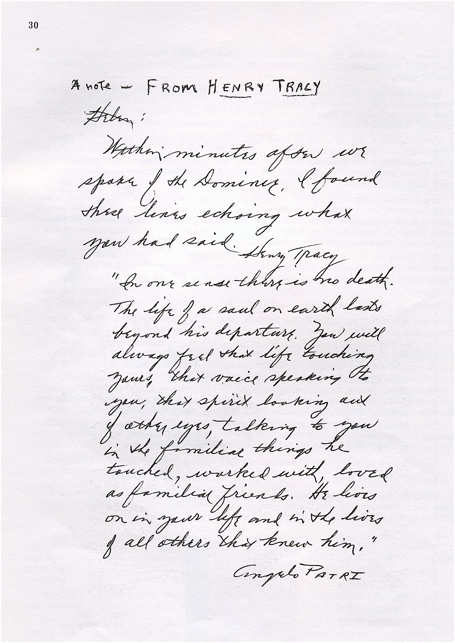 30
A note — FROM HENRY TRACY
Helen:
Within minutes after we
spoke of the Dominie, I found
these lines echoing what
you had said.
Henry Tracy
"In one sense there is no death.
The life of a soul on earth lasts
beyond his departure. You will
always feel that life touching
yours, that voice speaking to
you, that spirit looking out
of other eyes, talking to you
in the familiar things he
touched, worked with, loved
as familiar friends. He lives
on in your life and in the lives
of all others that knew him."
Angelo PATRI